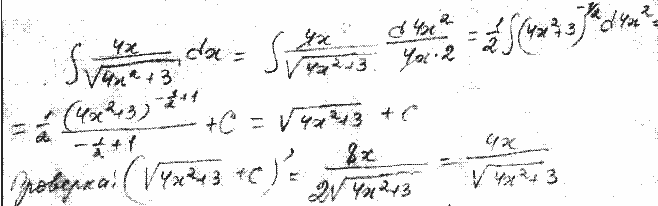 ∫ 4x/√(4x²+3) dx = ∫ 4x/√(4x²+3) d4x²/(4x·2) = 1/2 ∫(4x²+3)^(-1/2) d4x² =
= 1/2 (4x²+3)^(-1/2+1)/(-1/2+1) + C = √(4x²+3) + C
Проверка: (√(4x²+3) + C)' = 8x/(2√(4x²+3)) = 4x/√(4x²+3)